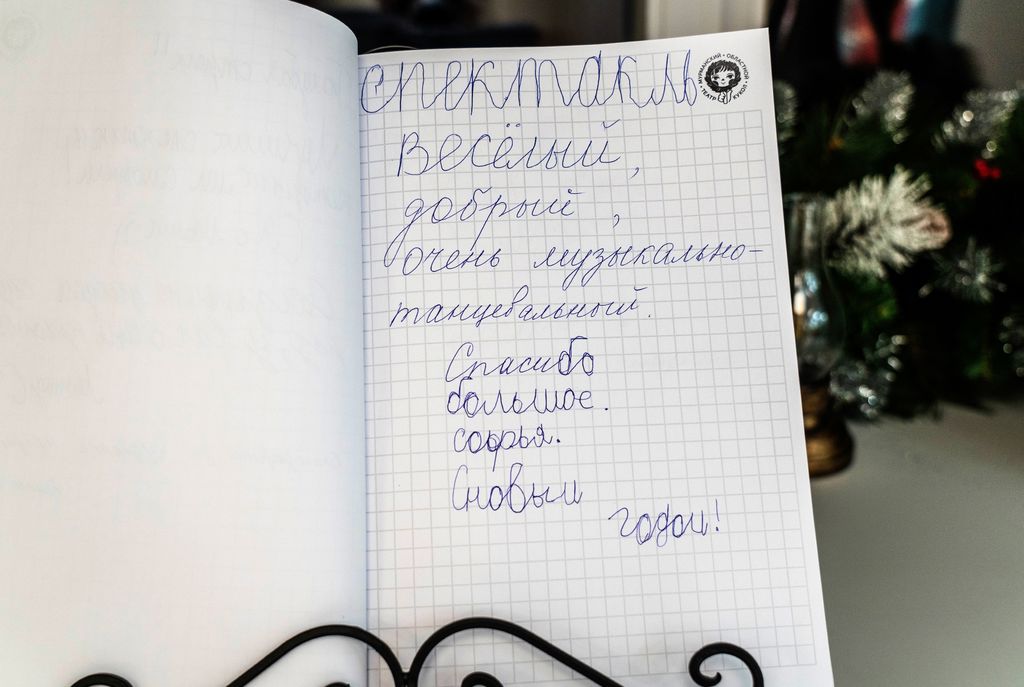 спектакль
МУРМАНСКИЙ • ОБЛАСТНОЙ • ТЕАТР КУКОЛ •
Весёлый,
добрый,
очень музыкально-
танцевальный.
Спасибо
большое.
софья.
Сновым
годом!